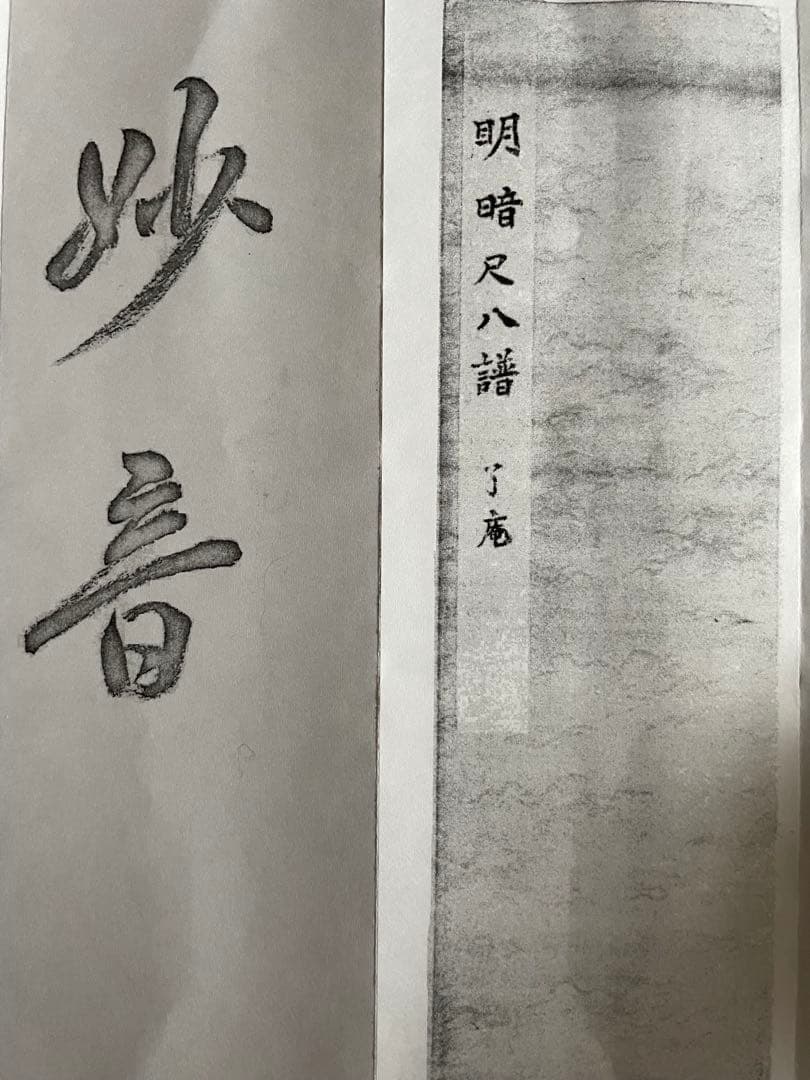 明暗尺八譜 了庵
妙音